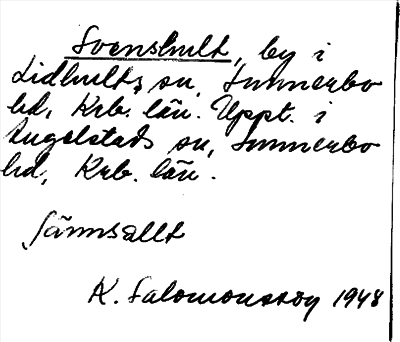 Svenshult, by i
Lidhults sn, Sunnerbo
hd, Krb. län. Uppt. i
Angelstads sn, Sunnerbo
hd, Krb. län.
Jämnsallt
K. Salomonsson 1948